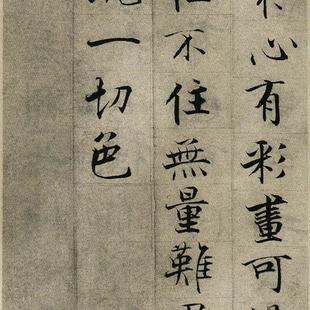 心有彩畫可
不住無量難
一切色